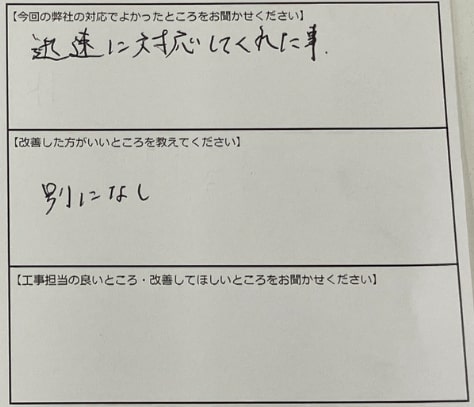 【今回の弊社の対応でよかったところをお聞かせください】
迅速に対応してくれた事.
【改善した方がいいところを教えてください】
別になし
【工事担当の良いところ・改善してほしいところをお聞かせください】